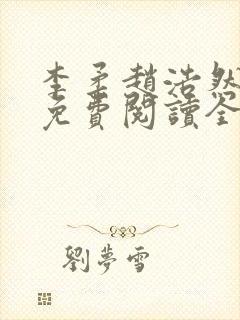 李矛趙浩然
免費閱讀全
劉夢雪